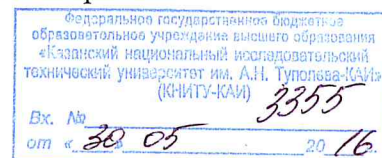 Федеральное государственное бюджетное
образовательное учреждение высшего образования
«Казанский национальный исследовательский
технический университет им. А.Н. Туполева-КАИ»
(КНИТУ-КАИ)
Вх. № 3355
от « 30 » 05 20 16